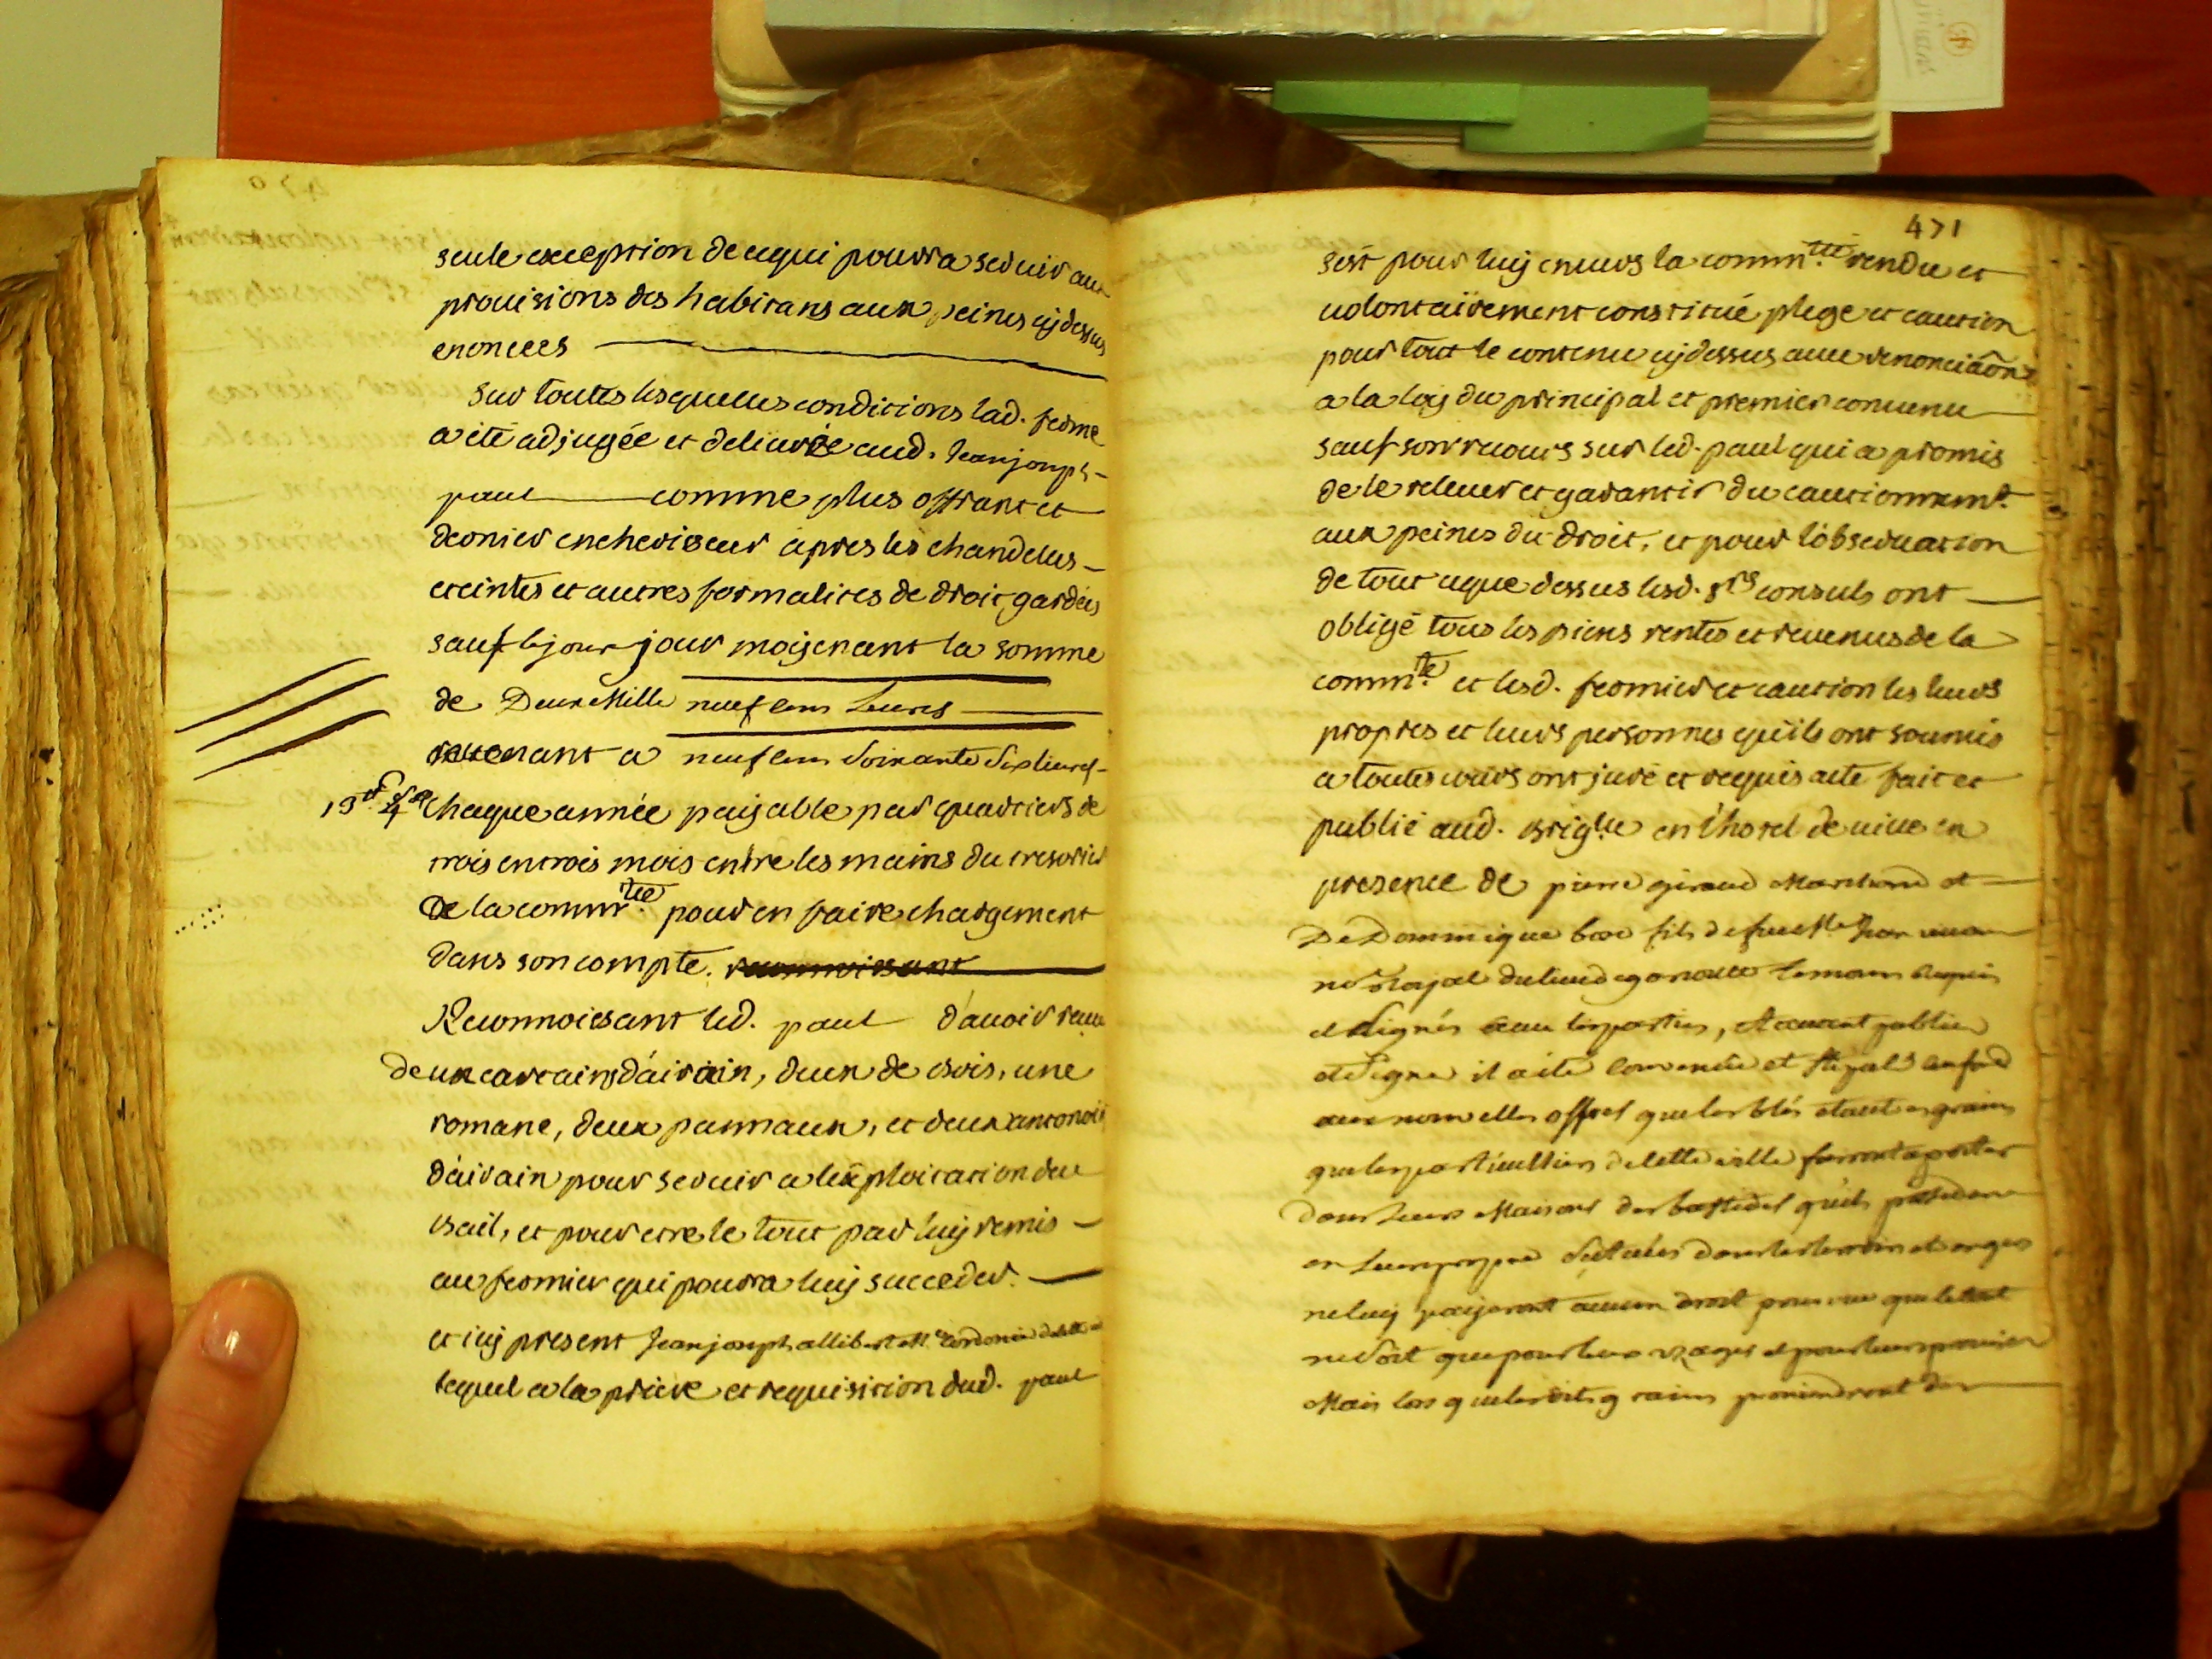 seule exception de ce qui pourra servir aux
provisions des habitans aux peines cy dessus
enoncées
Sur toutes lesquelles conditions lad. ferme
a eté adjugée et delivrée aud. Jean joseph
paul comme plus offrant et
dernier encherisseur apres les chandelles
eteintes et autres formalites de droit gardées
sauf le jour jour moyenant la somme
de Deux Mille neuf Cens Livres
revenant a neuf Cens soixante six livres
13 s. 4 d. Chaque année payable par quartiers de
trois en trois mois entre les mains du tresorier
De la comm.té pour en faire chargement
dans son compte. reconnoissant
Reconnoissant led. paul d'avoir receu
deux cartains d'airain, deux de bois, une
romane, deux pannaux, et deux
d'airain pour servir a l'exploitation du
Bail, et pour etre le tout par luy remis
au fermier qui pourra luy succeder.
et icy present Jean joseph allibert M.e Cordonnier
lequel a la priere et requisition dud. paul
471
s'est pour luy envers la comm.té rendu et
volontairement constitué plege et caution
pour tout le contenu cy dessus avec renonciâon
a la loy du principal et premier convenu
sauf son recours sur led. paul qui a promis
de le relever et garantir du cautionnem.t
aux peines du droit, et pour l'observation
de tout ce que dessus lesd. s.rs consuls ont
obligé tous les biens rentes et revenus de la
comm.té et lesd. fermier et caution les leurs
propres et leurs personnes qu'ils ont soumis
a toutes cours ont juré et requis acte fait et
publié aud. Brig.lle en l'hotel de ville en
presence de pierre giraud Marchand et
De Dominique fils de feu M.e
no.re Royal du lieu de temoins requis
et signés avec les parties, et avant publier
et signer il a eté convenu et
aux nouvelles offres que les blés et autres grains
que les particulliers de cette ville fairont aporter
dans leurs Maisons des bastides qu'ils possedent
en leur propre situées dans les
ne luy payeront aucun droit pourveu que le tout
ne soit que pour leur usages et pour leurs provision
Mais lors que lesdits grains proviendront des